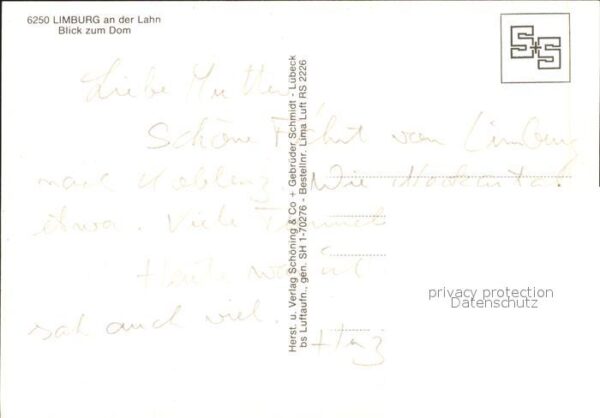 6250 LIMBURG an der Lahn
Blick zum Dom
S+S
Liebe Mutter
Schöne Fahrt von Limburg
nach Koblenz. Wie
etwa. Viele
Heute
sah auch viel.
Herst. u. Verlag Schöning & Co + Gebrüder Schmidt - Lübeck
bs Luftaufn., gen. SH 1-70276 - Bestellnr. Lima Luft RS 2226
privacy protection
Datenschutz